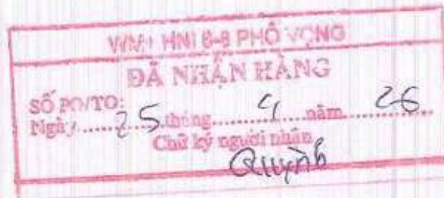 WM+ HNI 6-8 PHỐ VỌNG
ĐÃ NHẬN HÀNG
SỐ PO/TO:
Ngày ..... 25 tháng ..... 4 năm ..... 26
Chữ ký người nhận
Quỳnh